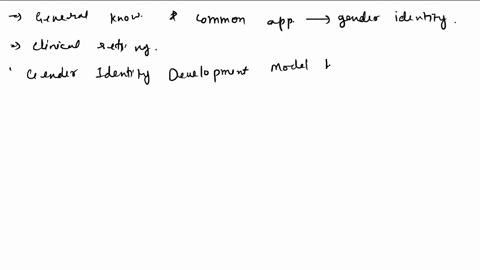 → General know. & common app → gender identity.
→ Clinical setting.
· Gender Identity Development Model